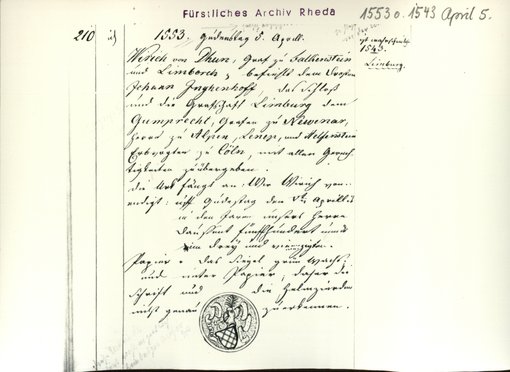 Fürstliches Archiv Rheda
1553 o. 1543 April 5.
210
1553. Gudenstag 5. Aprill.
ist wahrscheinlich
1543.
Limburg.
Wirich von Dhun, Graf zu Falkenstein
und Limborch, befiehlt dem Drosten
Johann Inghenhoff, das Schloß
und die Grafschaft Limburg dem
Gumprecht, Grafen zu Newenar,
Herrn zu Alpen, Lenep, und Helfenstein
Erbvogten zu Cöln, mit allen Gerech-
tigkeiten zu übergeben.
Die Urk fängt an: Wir Wirich von
endigt: uff Gudestag den Vten Aprillis
in den Jaren unsers Herrn
Dausent fünffhundert
drey und
Papier. Das Siegel grün Wachs,
und unter Papier, daher die
Schrift und die Helmzierden
nicht genau zu erkennen.